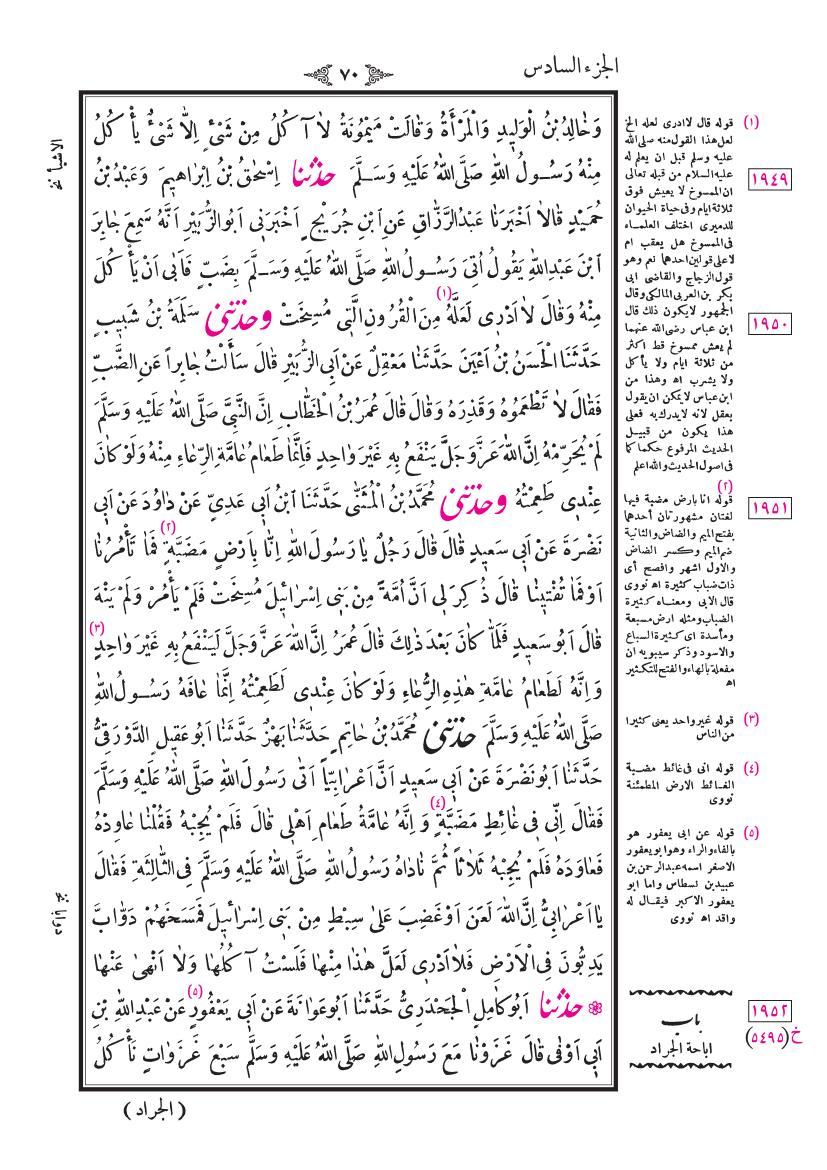 الجزء السادس
٧٠
وَخَالِدُ بْنُ الْوَلِيدِ وَالْمَرْأَةُ وَقَالَتْ مَيْمُونَةُ لَا آكُلُ مِنْ شَيْءٍ إِلَّا شَيْءٌ يَأْكُلُ
مِنْهُ رَسُولُ اللهِ صَلَّى اللهُ عَلَيْهِ وَسَلَّمَ حَدَّثَنَا إِسْحٰقُ بْنُ إِبْرَاهِيمَ وَعَبْدُ بْنُ
حُمَيْدٍ قَالَا أَخْبَرَنَا عَبْدُ الرَّزَّاقِ عَنِ ابْنِ جُرَيْجٍ أَخْبَرَنِي أَبُو الزُّبَيْرِ أَنَّهُ سَمِعَ جَابِرَ
ابْنَ عَبْدِ اللهِ يَقُولُ أُتِيَ رَسُولُ اللهِ صَلَّى اللهُ عَلَيْهِ وَسَلَّمَ بِضَبٍّ فَأَبَى أَنْ يَأْكُلَ
مِنْهُ وَقَالَ لَا أَدْرِي لَعَلَّهُ (١) مِنَ الْقُرُونِ الَّتِي مُسِخَتْ وَحَدَّثَنِي سَلَمَةُ بْنُ شَبِيبٍ
حَدَّثَنَا الْحَسَنُ بْنُ أَعْيَنَ حَدَّثَنَا مَعْقِلٌ عَنْ أَبِي الزُّبَيْرِ قَالَ سَأَلْتُ جَابِراً عَنِ الضَّبِّ
فَقَالَ لَا تَطْعَمُوهُ وَقَذِرَهُ وَقَالَ قَالَ عُمَرُ بْنُ الْخَطَّابِ إِنَّ النَّبِيَّ صَلَّى اللهُ عَلَيْهِ وَسَلَّمَ
لَمْ يُحَرِّمْهُ إِنَّ اللهَ عَزَّ وَجَلَّ يَنْفَعُ بِهِ غَيْرَ وَاحِدٍ فَإِنَّمَا طَعَامُ عَامَّةِ الرِّعَاءِ مِنْهُ وَلَوْ كَانَ
عِنْدِي طَعِمْتُهُ وَحَدَّثَنِي مُحَمَّدُ بْنُ الْمُثَنَّى حَدَّثَنَا ابْنُ أَبِي عَدِيٍّ عَنْ دَاوُدَ عَنْ أَبِي
نَضْرَةَ عَنْ أَبِي سَعِيدٍ قَالَ قَالَ رَجُلٌ يَا رَسُولَ اللهِ إِنَّا بِأَرْضٍ مَضَبَّةٍ (٢) فَمَا تَأْمُرُنَا
أَوْ فَمَا تُفْتِينَا قَالَ ذُكِرَ لِي أَنَّ أُمَّةً مِنْ بَنِي إِسْرَائِيلَ مُسِخَتْ فَلَمْ يَأْمُرْ وَلَمْ يَنْهَ
قَالَ أَبُو سَعِيدٍ فَلَمَّا كَانَ بَعْدَ ذَلِكَ قَالَ عُمَرُ إِنَّ اللهَ عَزَّ وَجَلَّ لَيَنْفَعُ بِهِ غَيْرَ وَاحِدٍ (٣)
وَإِنَّهُ لَطَعَامُ عَامَّةِ هٰذِهِ الرِّعَاءِ وَلَوْ كَانَ عِنْدِي لَطَعِمْتُهُ إِنَّمَا عَافَهُ رَسُولُ اللهِ
صَلَّى اللهُ عَلَيْهِ وَسَلَّمَ حَدَّثَنِي مُحَمَّدُ بْنُ حَاتِمٍ حَدَّثَنَا بَهْزٌ حَدَّثَنَا أَبُو عَقِيلٍ الدَّوْرَقِيُّ
حَدَّثَنَا أَبُو نَضْرَةَ عَنْ أَبِي سَعِيدٍ أَنَّ أَعْرَابِيّاً أَتَى رَسُولَ اللهِ صَلَّى اللهُ عَلَيْهِ وَسَلَّمَ
فَقَالَ إِنِّي فِي غَائِطٍ مَضَبَّةٍ (٤) وَإِنَّهُ عَامَّةُ طَعَامِ أَهْلِي قَالَ فَلَمْ يُجِبْهُ فَقُلْنَا عَاوِدْهُ
فَعَاوَدَهُ فَلَمْ يُجِبْهُ ثَلَاثاً ثُمَّ نَادَاهُ رَسُولُ اللهِ صَلَّى اللهُ عَلَيْهِ وَسَلَّمَ فِي الثَّالِثَةِ فَقَالَ
يَا أَعْرَابِيُّ إِنَّ اللهَ لَعَنَ أَوْ غَضِبَ عَلَى سِبْطٍ مِنْ بَنِي إِسْرَائِيلَ فَمَسَخَهُمْ دَوَابَّ
يَدِبُّونَ فِي الْأَرْضِ فَلَا أَدْرِي لَعَلَّ هٰذَا مِنْهَا فَلَسْتُ آكُلُهَا وَلَا أَنْهَى عَنْهَا
حَدَّثَنَا أَبُو كَامِلٍ الْجَحْدَرِيُّ حَدَّثَنَا أَبُو عَوَانَةَ عَنْ أَبِي يَعْفُورٍ (٥) عَنْ عَبْدِ اللهِ بْنِ
أَبِي أَوْفَى قَالَ غَزَوْنَا مَعَ رَسُولِ اللهِ صَلَّى اللهُ عَلَيْهِ وَسَلَّمَ سَبْعَ غَزَوَاتٍ نَأْكُلُ
(الجراد)
(١) قوله قال لا ادرى لعله الخ
لعل هذا القول منه صلى الله
عليه وسلم قبل ان يعلم له
عليه السلام من قبله تعالى
ان الممسوخ لا يعيش فوق
ثلاثة ايام وفى حياة الحيوان
للدميرى اختلف العلماء
فى الممسوخ هل يعقب ام
لا على قولين احدهما نعم وهو
قول الزجاج والقاضى ابى
بكر بن العربى المالكى وقال
الجمهور لا يكون ذلك قال
ابن عباس رضى الله عنهما
لم يعش ممسوخ قط اكثر
من ثلاثة ايام ولا يأكل
ولا يشرب اه وهذا من
ابن عباس لا يمكن ان يقول
بعقل لانه لا يدرك به فعلى
هذا يكون من قبيل
الحديث المرفوع حكما كما
فى اصول الحديث والله اعلم
(٢)
قوله انا بارض مضبة فيها
لغتان مشهورتان أحدهما
بفتح الميم والضاد والثانية
ضم الميم وكسر الضاد
والاول اشهر وافصح أى
ذات ضباب كثيرة اه نووى
قال الابى ومعناه كثيرة
الضباب ومثله ارض مسبعة
ومأسدة اى كثيرة السباع
والاسود وذكر سيبويه ان
مفعلة بالهاء والفتح للتكثير
اه
(٣) قوله غير واحد يعنى كثيرا
من الناس
(٤) قوله انى فى غائط مضبة
الغائط الارض المطمئنة
نووى
(٥) قوله عن ابى يعفور هو
بالفاء والراء وهو ابو يعفور
الاصغر اسمه عبدالرحمن بن
عبيد بن نسطاس واما ابو
يعفور الاكبر فيقال له
واقد اه نووى
باب
اباحة الجراد
١٩٤٩
١٩٥٠
١٩٥١
١٩٥٢
خ (٥٤٩٥)